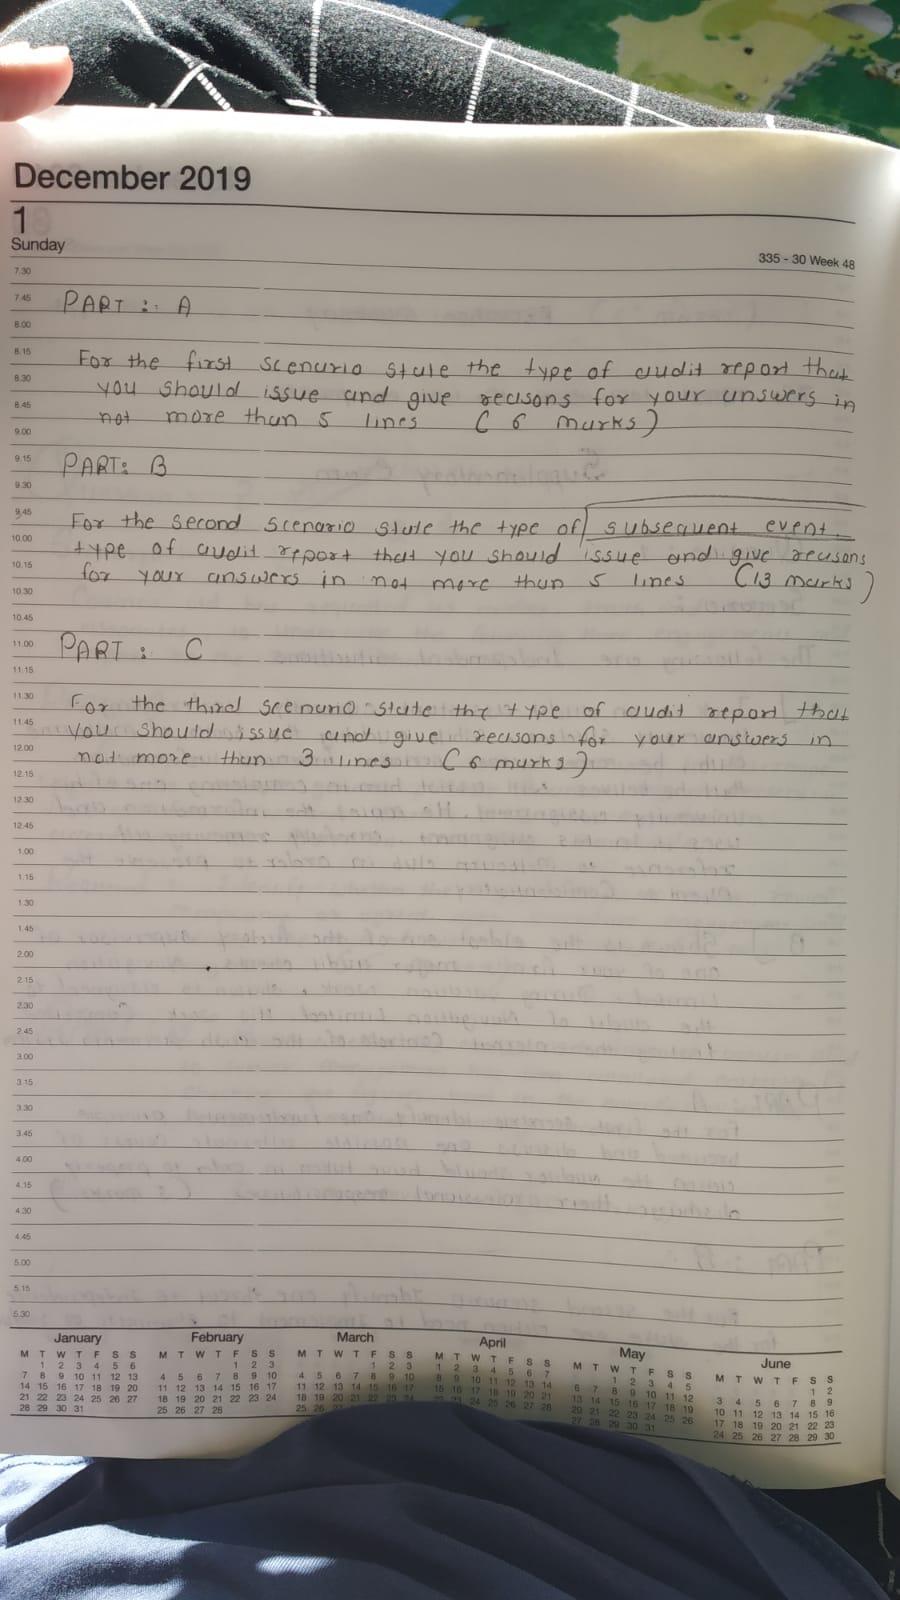 December 2019
1
Sunday
335 - 30 Week 48
7.30
7.45 PART :- A
8.00
8.15 For the first scenario state the type of audit report that
8.30 you should issue and give reasons for your answers in
8.45 not more than 5 lines ( 6 marks )
9.00
9.15 PART: B
9.30
9.45 For the second scenario state the type of subsequent event
10.00 type of audit report that you should issue and give reasons
10.15 for your answers in not more than 5 lines (13 marks)
10.30
10.45
11.00 PART : C
11.15
11.30 For the third scenario state the type of audit report that
11.45 you should issue and give reasons for your answers in
12.00 not more than 3 lines ( 6 marks )
12.15
12.30
12.45
1.00
1.15
1.30
1.45
2.00
2.15
2.30
2.45
3.00
3.15
3.30
3.45
4.00
4.15
4.30
4.45
5.00
5.15
5.30
January February March April May June
M T W T F S S M T W T F S S M T W T F S S M T W T F S S M T W T F S S M T W T F S S
1 2 3 4 5 6 1 2 3 1 2 3 1 2 3 4 5 6 7 1 2 3 4 5 1 2
7 8 9 10 11 12 13 4 5 6 7 8 9 10 4 5 6 7 8 9 10 8 9 10 11 12 13 14 6 7 8 9 10 11 12 3 4 5 6 7 8 9
14 15 16 17 18 19 20 11 12 13 14 15 16 17 11 12 13 14 15 16 17 15 16 17 18 19 20 21 13 14 15 16 17 18 19 10 11 12 13 14 15 16
21 22 23 24 25 26 27 18 19 20 21 22 23 24 18 19 20 21 22 23 24 24 25 26 27 28 20 21 22 23 24 25 26 17 18 19 20 21 22 23
28 29 30 31 25 26 27 28 25 26 27 28 29 30 31 24 25 26 27 28 29 30